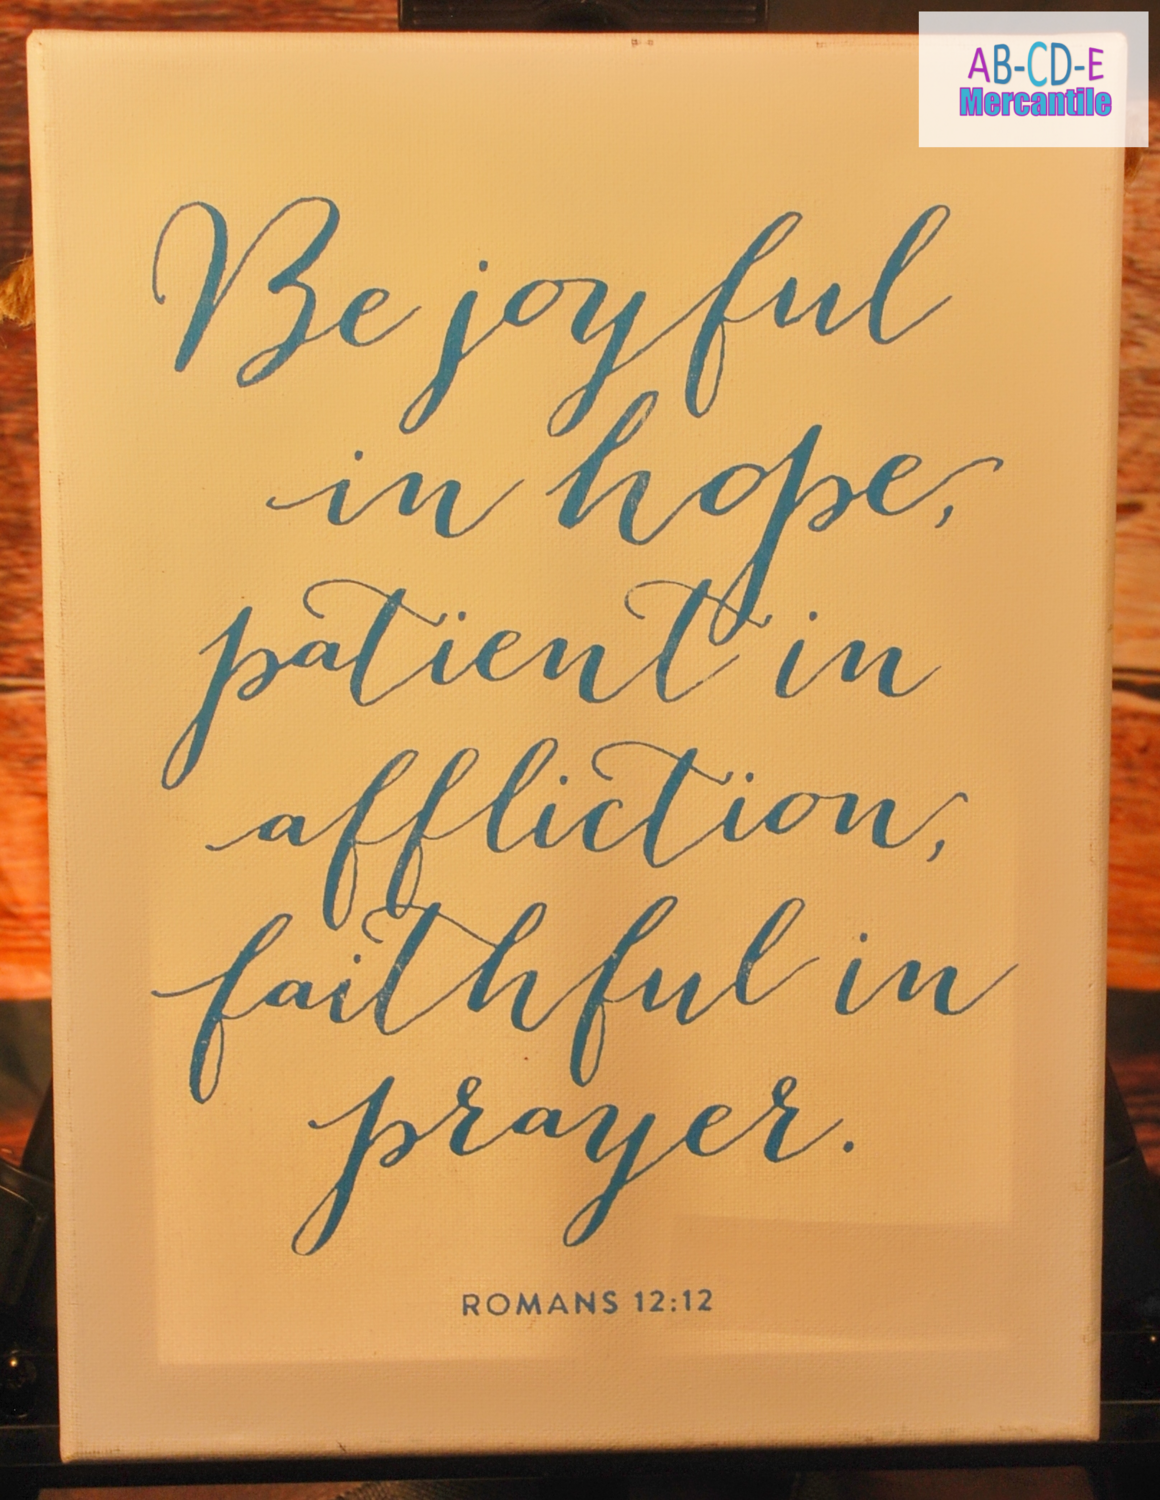 AB-CD-E
Mercantile
Be joyful
in hope,
patient in
affliction,
faithful in
prayer.
ROMANS 12:12